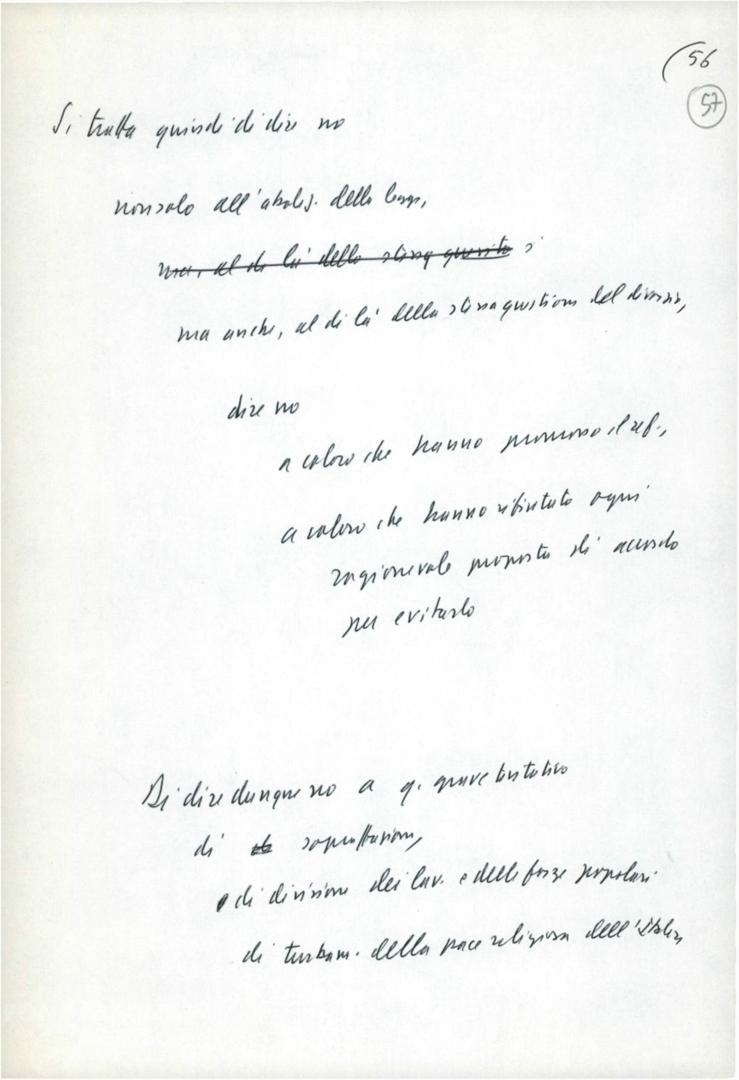 (56
57
Si tratta quindi di dire no
non solo all'aboliz. della legge,
ma, al di là della stessa questio
ma anche, al di là della stessa questione del divorzio,
dire no
a coloro che hanno promosso il ref.,
a coloro che hanno rifiutato ogni
ragionevole proposta di accordo
per evitarlo
Di dire dunque no a q. grave tentativo
di sopraffazione,
e di divisione dei lav. e delle forze popolari
di turbam. della pace religiosa dell'Italia